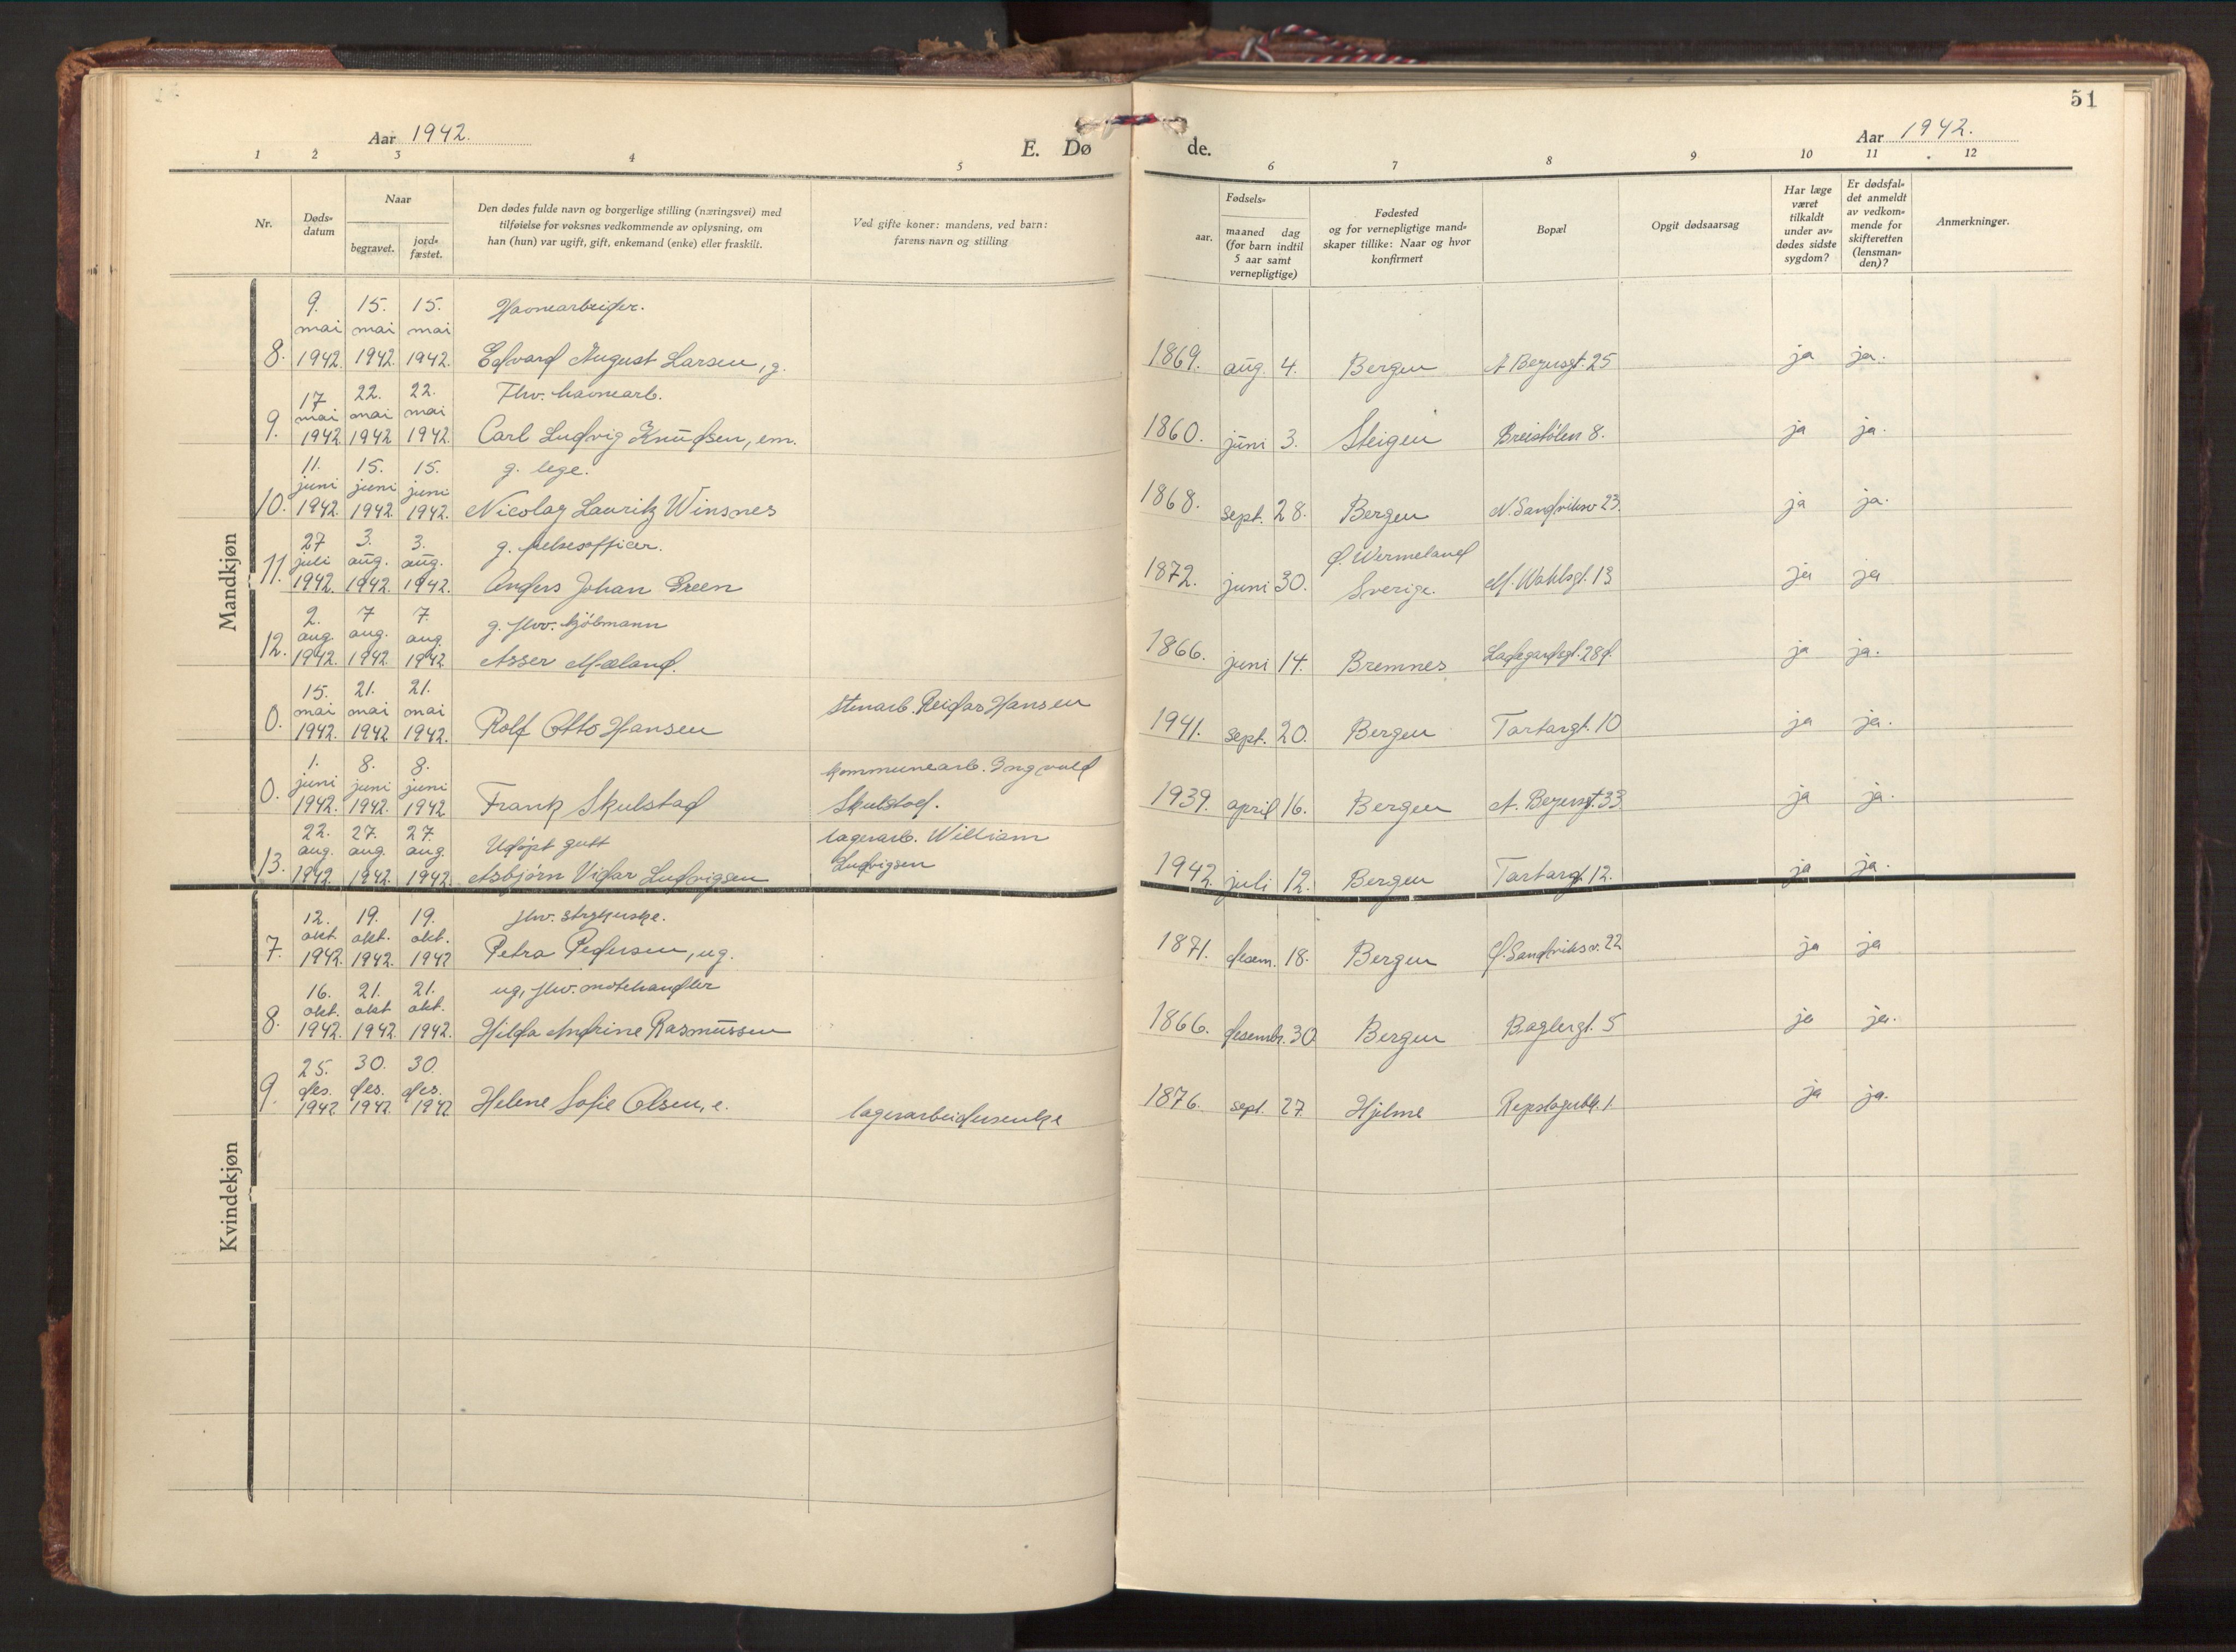 51
Aar 1942.
E. Dø
de.
Aar 1942.
1 2 3 4 5
6 7 8 9 10 11 12
Nr.
Døds-
datum
Naar
begravet.
jord-
fæstet.
Den dødes fulde navn og borgerlige stilling (næringsvei) med
tilføielse for voksnes vedkommende av oplysning, om
han (hun) var ugift, gift, enkemand (enke) eller fraskilt.
Ved gifte koner: mandens, ved barn:
farens navn og stilling
Fødsels-
aar.
maaned dag
(for barn indtil
5 aar samt
vernepligtige)
Fødested
og for vernepligtige mand-
skaper tillike: Naar og hvor
konfirmert
Bopæl
Opgit dødsaarsag
Har læge
været
tilkaldt
under av-
dødes sidste
sygdom?
Er dødsfal-
det anmeldt
av vedkom-
mende for
skifteretten
(lensman-
den)?
Anmerkninger.
Mandkjøn
9. 15. 15. Havnearbeider.
mai mai mai
8. 1942. 1942. 1942. Edvard August Larsen, g. 1869. aug. 4. Bergen A Bezusgt. 25 ja ja.
17 22. 22. Fhv. havnearb.
mai mai mai
9. 1942 1942 1942. Carl Ludvig Knudsen, em. 1860. juni 3. Steigen Breistølen 8. ja ja.
11. 15. 15. g. lege.
juni juni juni
10. 1942. 1942. 1942. Nicolay Lauritz Winsnes 1868. sept. 28. Bergen N. Sandviksv 23. ja ja.
27 3. 3. g. frelsesofficer. Ø. Wermeland
juli aug. aug.
11. 1942. 1942. 1942. Anders Johan Green 1872. juni 30. Sverige. M. Wahlsgt. 13 ja ja
2. 7 7. g. fhv. kjøbmann
aug. aug. aug.
12. 1942. 1942. 1942 Asser Mæland. 1866. juni 14. Bremnes Ladegardsgt. 28 ja ja.
15. 21. 21. stenarb. Reidar Hansen
mai mai mai
0. 1942. 1942 1942. Rolf Otto Hansen 1941. sept. 20. Bergen Tartargt. 10 ja ja.
1. 8. 8. kommunearb. Ingvald
juni juni juni
0. 1942. 1942. 1942 Frank Skulstad Skulstad. 1939. april 16. Bergen A. Bezusgt. 33 ja ja.
22. 27. 27. Udøpt gutt lagerarb. William
aug. aug. aug.
13. 1942. 1942. 1942. Asbjørn Vidar Ludvigsen Ludvigsen 1942. juli 12. Bergen Tartargt 12. ja ja.
Kvindekjøn
12. 19. 19. fhv. strykerske.
okt okt. okt.
7. 1942. 1942. 1942 Petra Pedersen, ug. 1871. desem. 18. Bergen Ø. Sandviksv. 22 ja ja
16. 21. 21. ug, fhv. motehandler
okt. okt okt.
8. 1942. 1942. 1942. Hilda Andrine Rasmussen 1866. desembr. 30 Bergen Baglergt. 5 ja ja.
25. 30. 30.
des. des. des.
9. 1942 1942. 1942 Helene Sofie Olsen, e. lagerarbeiderenke 1876. sept. 27. Hjelme Repslagerbk. 1. ja ja.